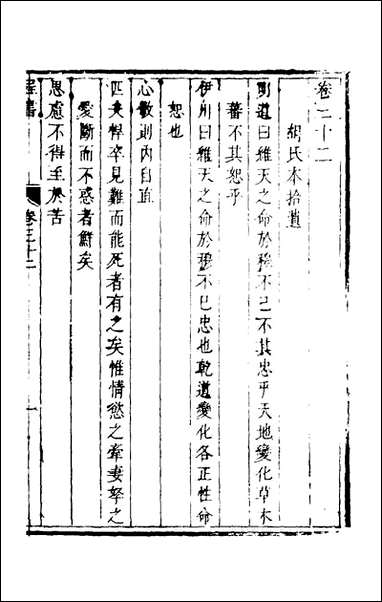 卷三十二
胡氏本拾遺
明道曰維天之命於穆不已不其忠乎天地變化草木
蕃不其恕乎
伊川曰維天之命於穆不已忠也乾道變化各正性命
恕也
心敬則內自直
匹夫悍卒見難而能死者有之矣惟情慾之牽妻孥之
愛斷而不惑者鮮矣
思慮不得至於苦
卷三十二
一